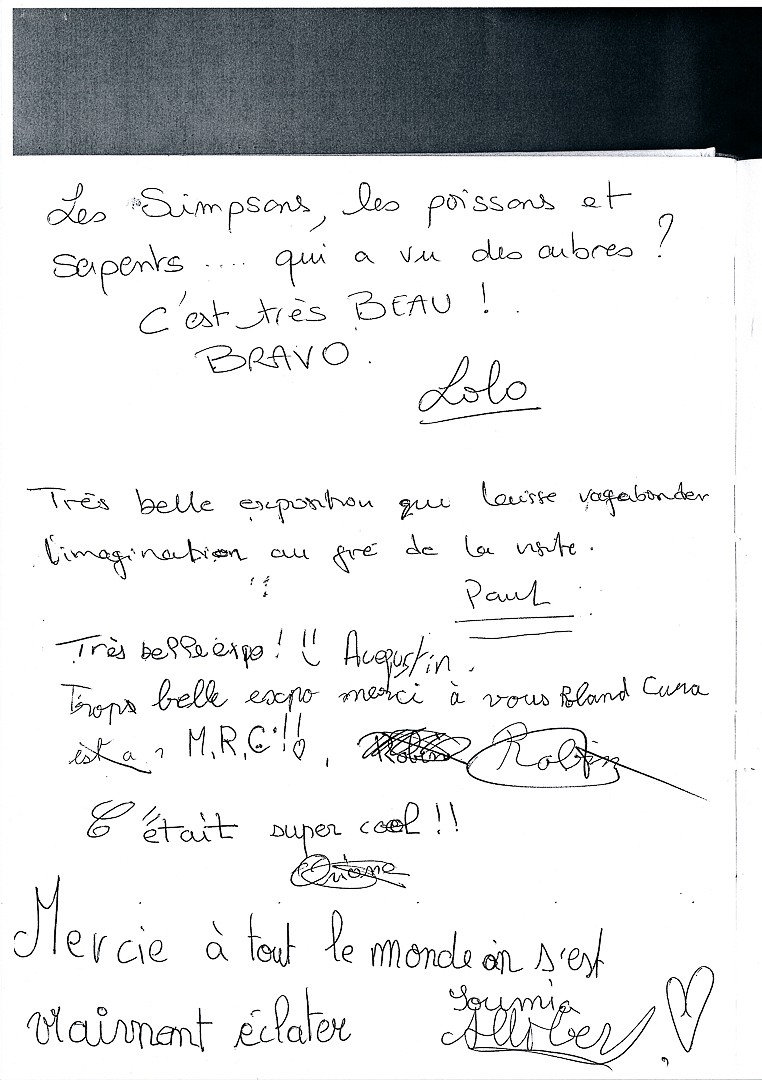 Les Simpsons, les poissons et
serpents .... qui a vu des arbres ?
C'est très BEAU !
BRAVO.
Lolo
Très belle exposition que laisse vagabonder
l'imagination au gré de la visite.
Paul
Très belle expo! Augustin.
Trops belle expo merci à vous Bland Cura
est a M.R.C!! Robin Robin
C'était super cool !!
Oriane
Mercie à tout le monde on s'est
vraimnent éclater
Soumia